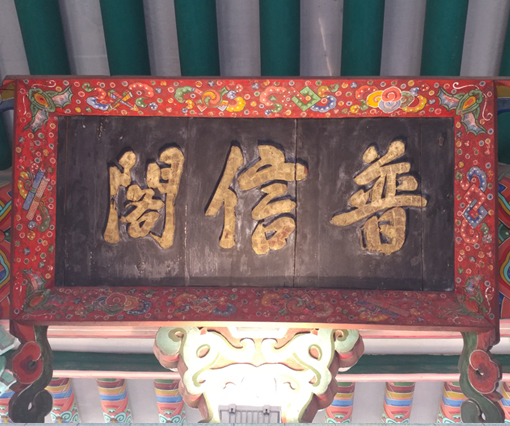 普信閣